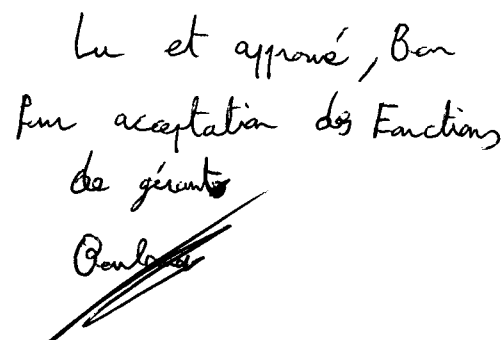 Lu et approuvé, Bon
Pour acceptation des Fonctions
de gérante